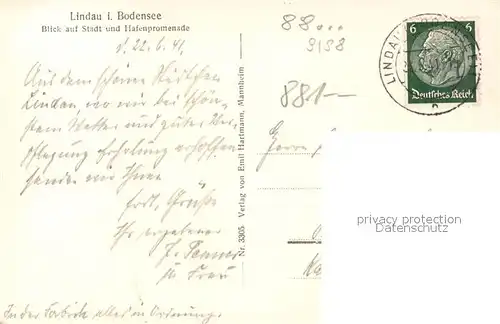 Lindau i. Bodensee
Blick auf Stadt und Hafenpromenade
d. 22.6.41.
Aus dem schönen Städtchen
Lindau, wo wir bei schön-
stem Wetter und guter Ver-
pflegung Erholung erhoffen
senden wir Ihnen
herzl. Grüße
Ihr ergebener
u. Frau
In der Fabrik alles in Ordnung.
Nr. 3305 Verlag von Emil Hartmann, Mannheim
88...
3138
881—
Herrn
LINDAU
6 6
Deutsches Reich
privacy protection
Datenschutz